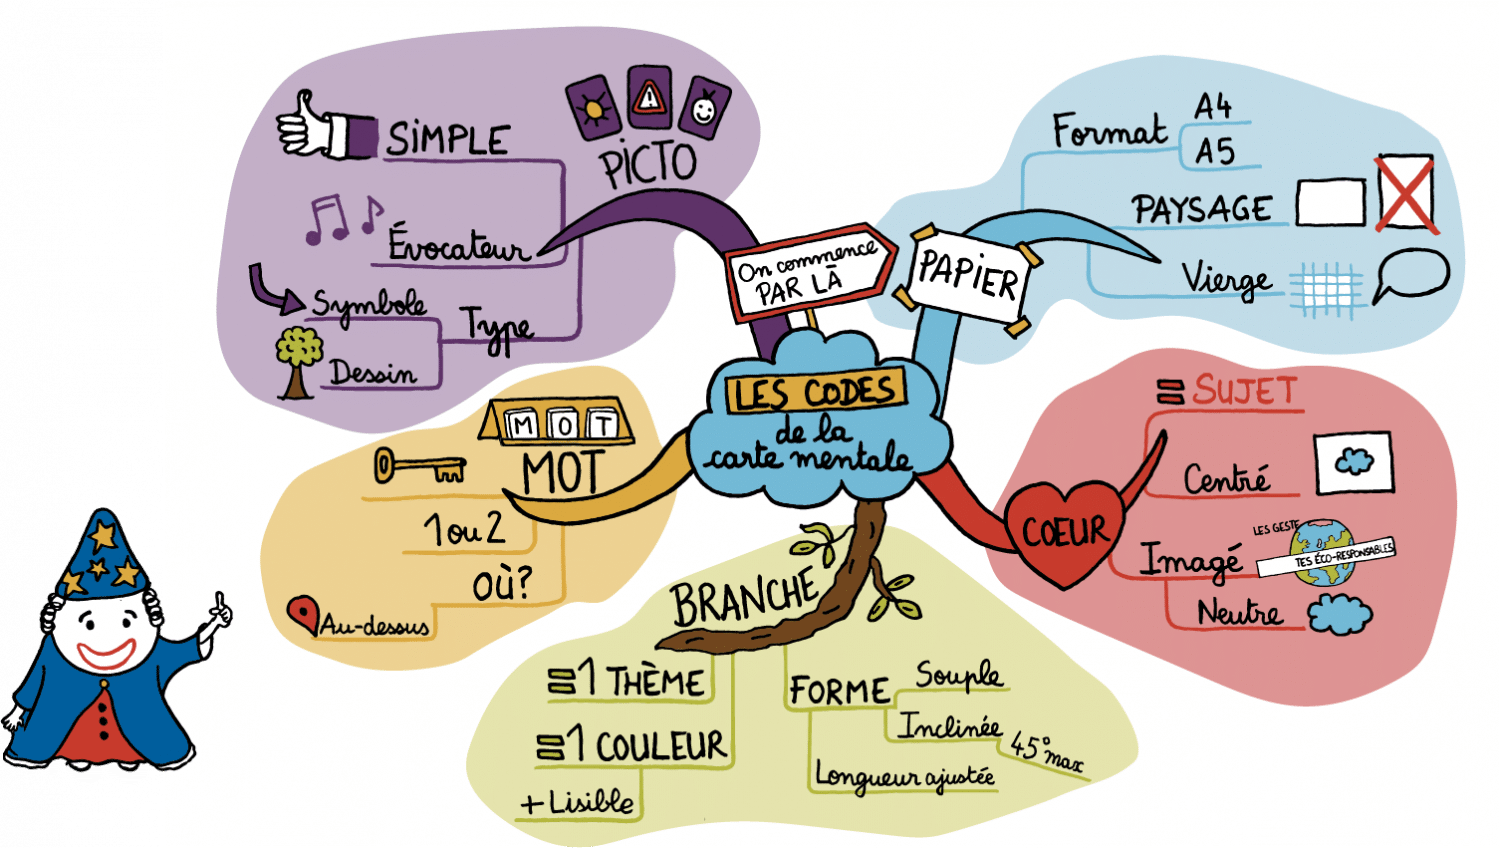 LES CODES
de la
carte mentale
On commence
PAR LÀ
PAPIER
Format
A4
A5
PAYSAGE
Vierge
COEUR
= SUJET
Centré
Imagé
LES GESTE
TES ÉCO-RESPONSABLES
Neutre
BRANCHE
=1 THÈME
=1 COULEUR
+ Lisible
FORME
Souple
Inclinée
45° max
Longueur ajustée
M O T
MOT
1 ou 2
OÙ?
Au-dessus
PICTO
SIMPLE
Évocateur
Type
Symbole
Dessin